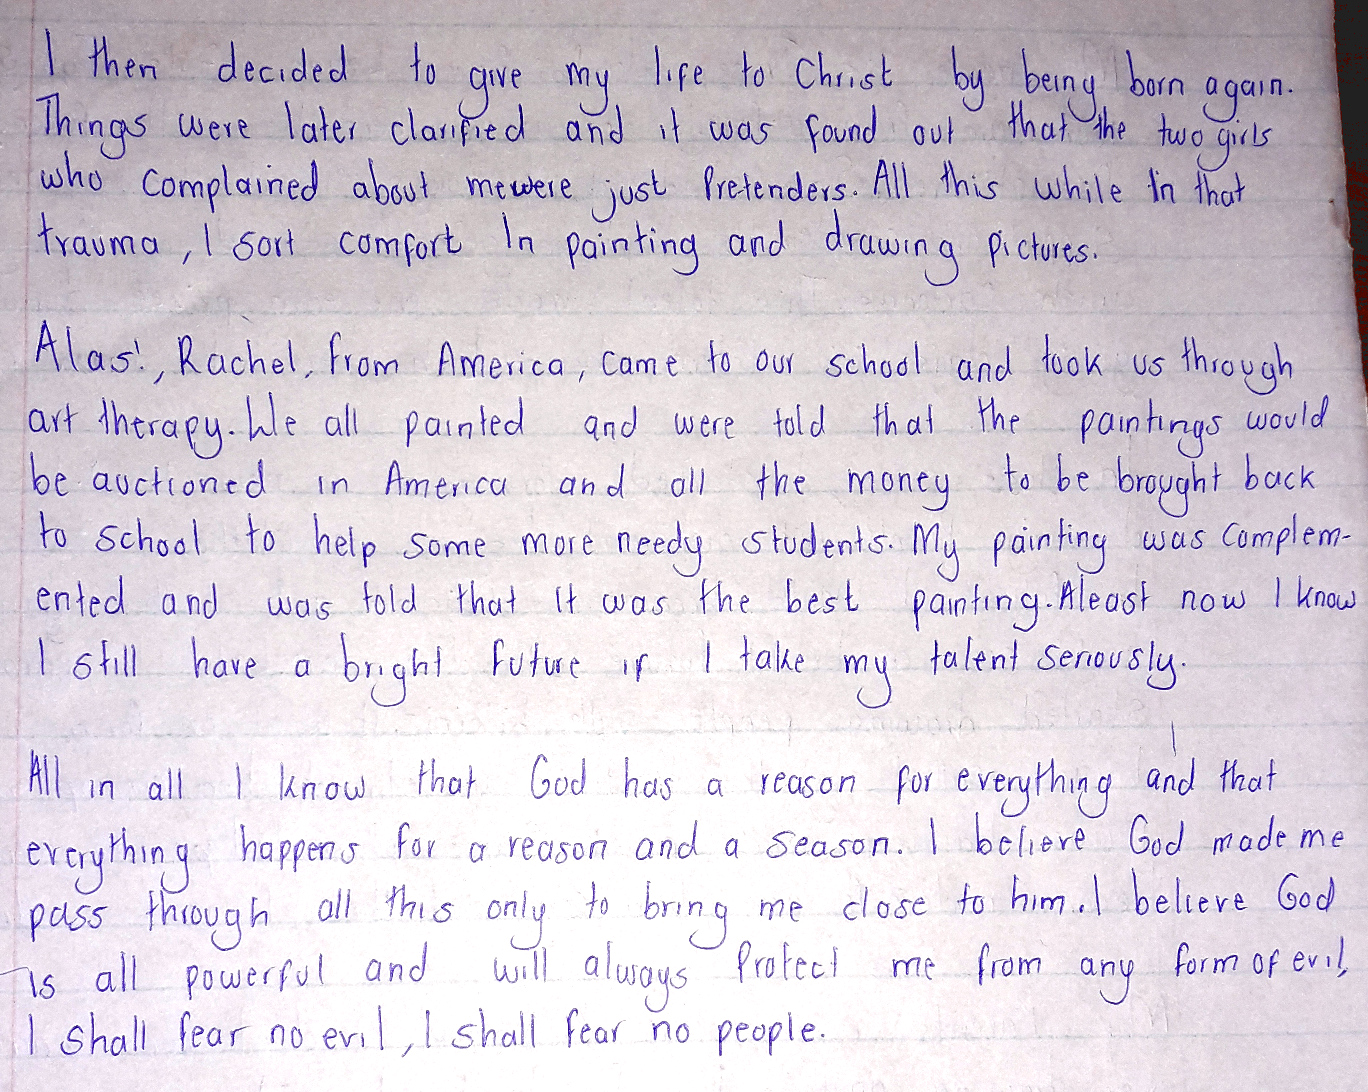 I then decided to give my life to Christ by being born again.
Things were later clarified and it was found out that the two girls
who complained about me were just Pretenders. All this while in that
trauma, I sort comfort In painting and drawing pictures.
Alas!, Rachel, from America, came to our school and took us through
art therapy. We all painted and were told that the paintings would
be auctioned in America and all the money to be brought back
to school to help some more needy students. My painting was Complem-
ented and was told that it was the best painting. Aleast now I know
I still have a bright future if I take my talent seriously.
All in all I know that God has a reason for everything and that
everything happens for a reason and a season. I believe God made me
pass through all this only to bring me close to him. I believe God
is all powerful and will always Protect me from any form of evil,
I shall fear no evil, I shall fear no people.